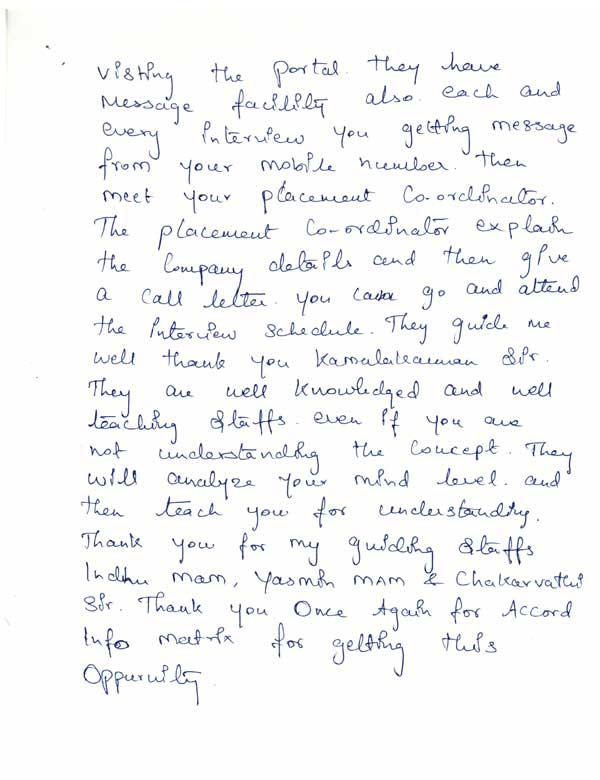 visting the portal. they have
message facility also. each and
every interview you getting message
from your mobile number. then
meet your placement Co-ordinator.
The placement Co-ordinator explain
the company details and then give
a call letter. you can go and attend
the interview schedule. They guide me
well thank you Kamalakannan Sir.
They are well knowledged and well
teaching staffs. even if you are
not understanding the concept. They
will analyze your mind level. and
then teach you for understanding.
Thank you for my guiding staffs
Indhu mam, Yasmin MAM & Chakarvathi
Sir. Thank you Once Again for Accord
Info matrix for getting this
Oppurnity.